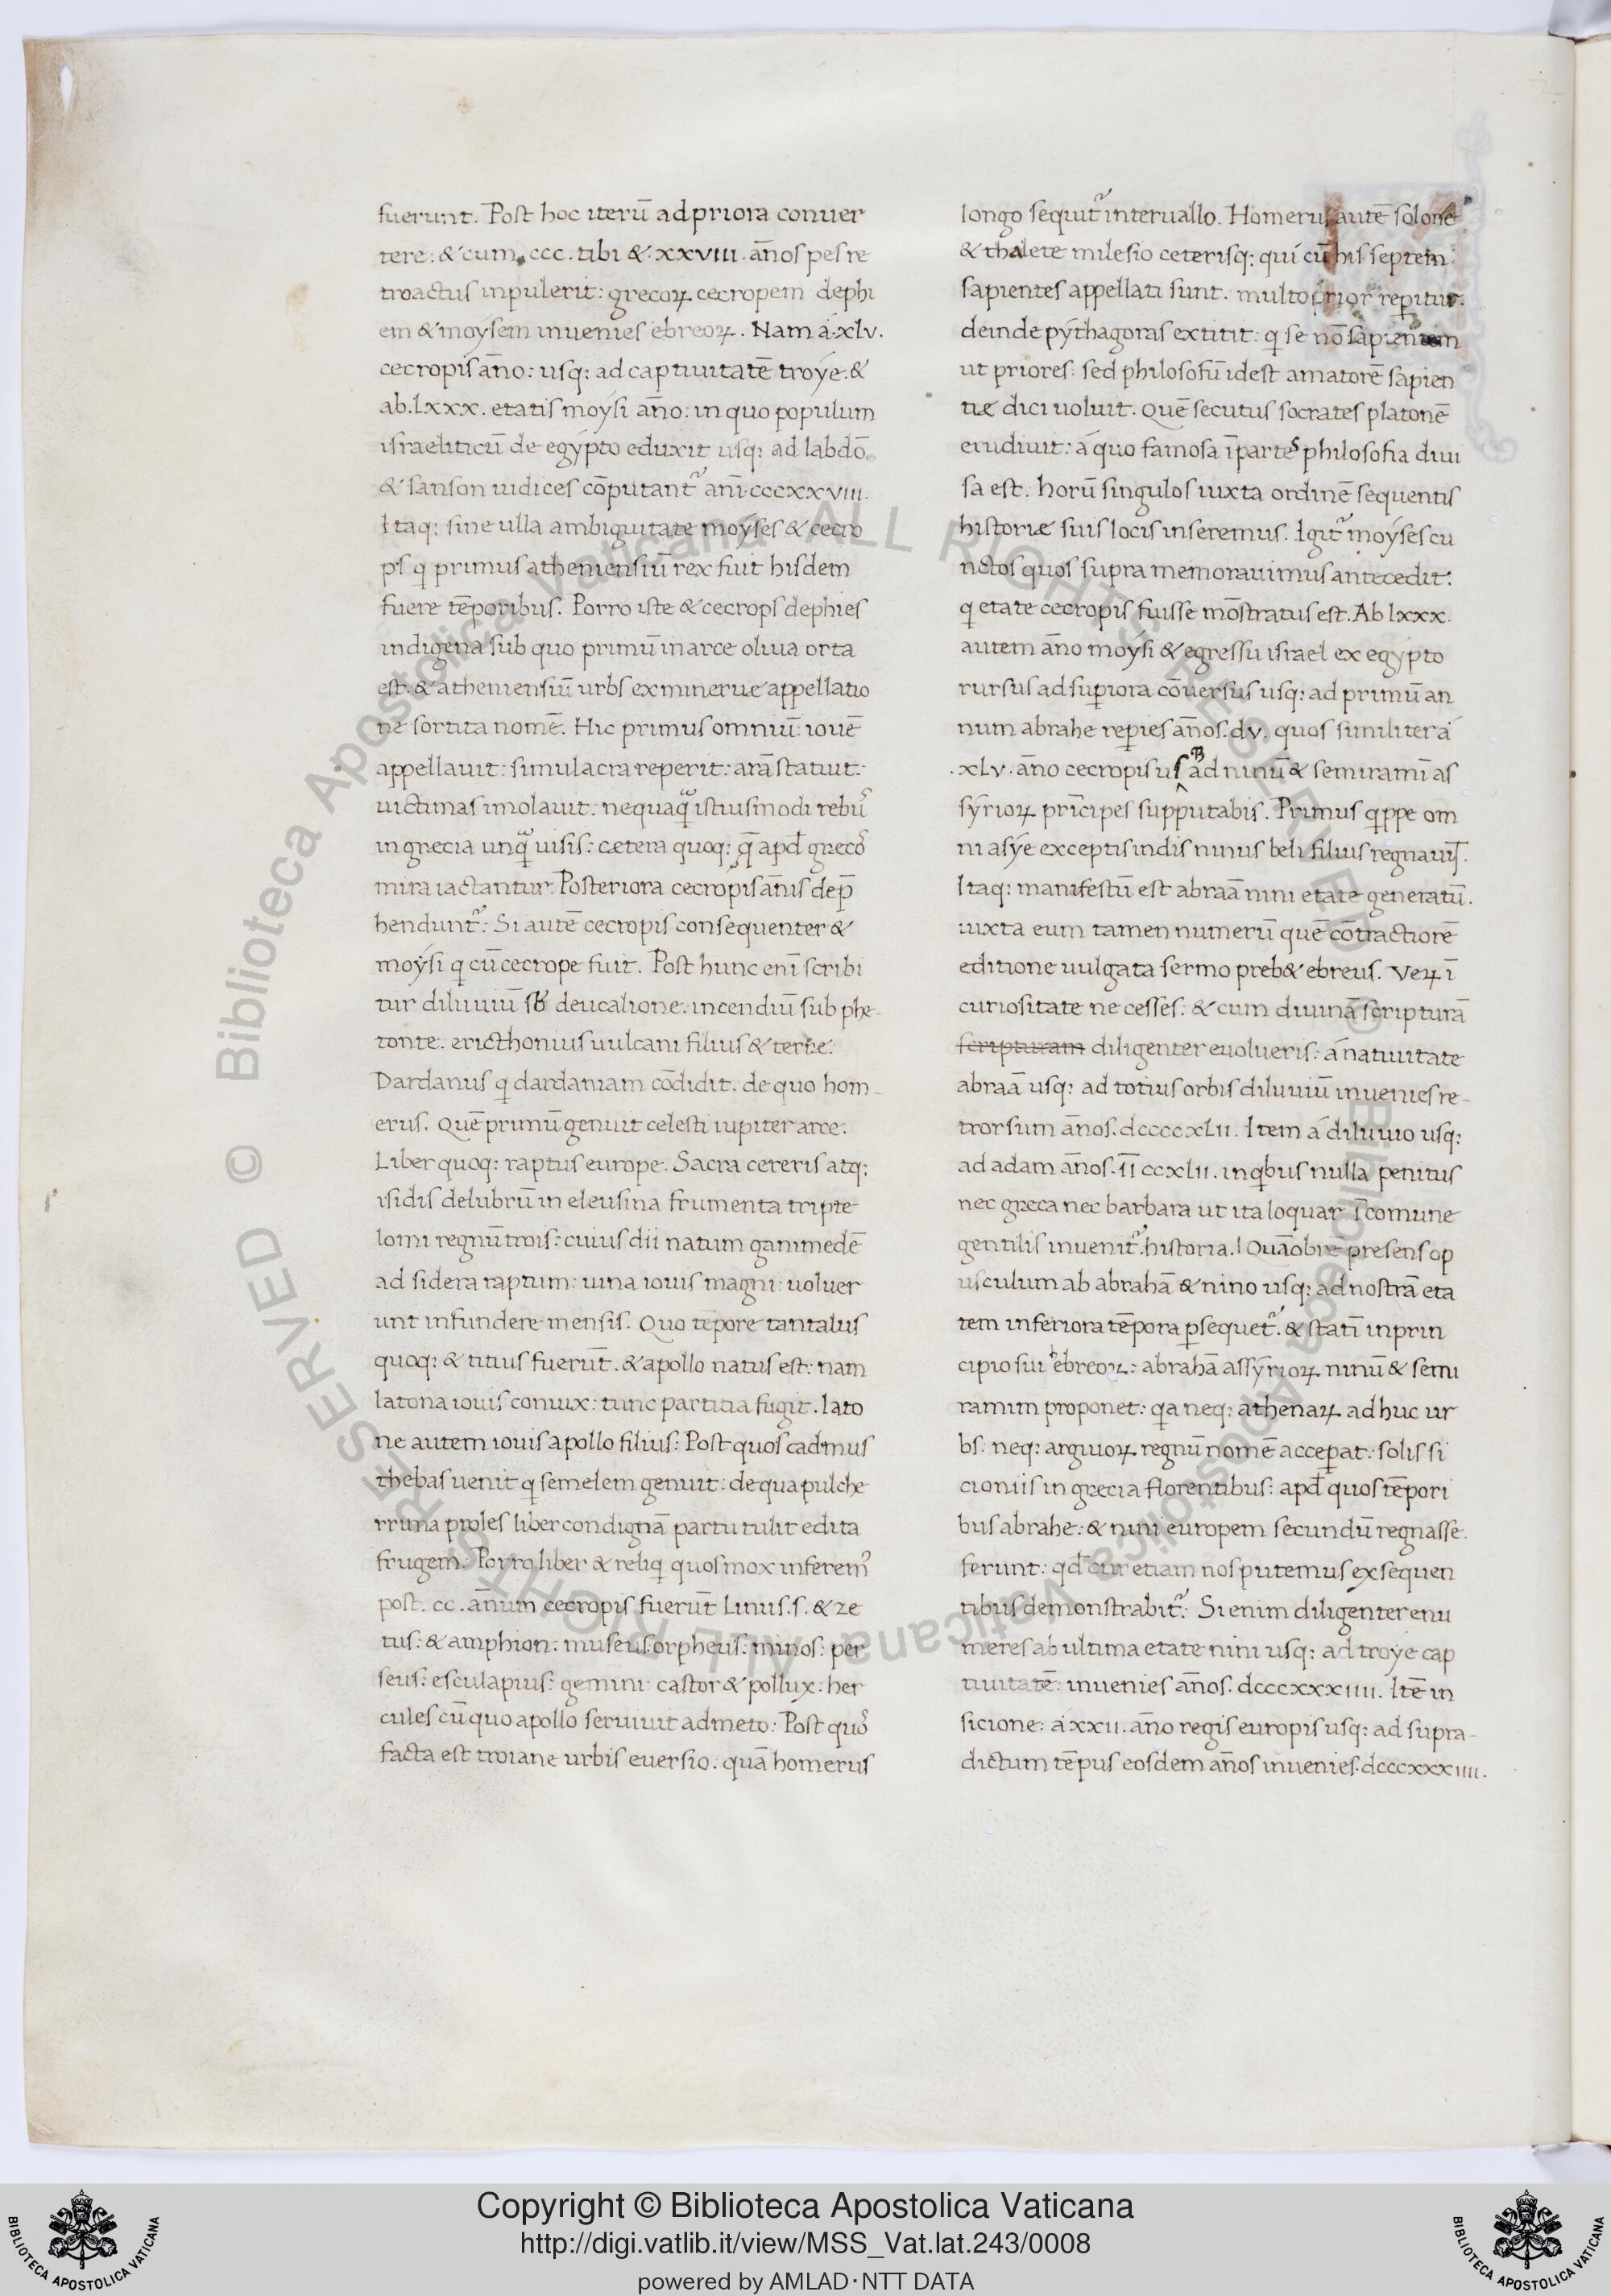 fuerunt. Post hoc iterū ad priora conuer
tere: & cum. ccc. tibi &. xxviii. ān̄os pes re
troactus inpulerit: grecoꝝ cecropem dephi
em & moysem inuenies ebreoꝝ. Nam a. xlv.
cecropis an̄o: usq: ad captiuitatē troye. &
ab. lxxx. etatis moysi an̄o: in quo populum
israeliticū de egypto eduxit usq: ad labdō
& sanson iudices cōputant᷑ an̄i. cccxxviii.
Itaq: sine ulla ambiguitate moyses & cecro
ps q primus atheniensiū rex fuit hisdem
fuere tēporibus. Porro iste & cecrops dephies
indigena sub quo primū in arce oliua orta
est. & atheniensiū urbs ex minerue appellatio
ne sortita nomē. Hic primus omniū: iouē
appellauit: simulacra reperit: arā statuit:
uictimas imolauit: nequaq̄ istiusmodi rebus᷑
in grecia unq̄ uisis: cetera quoq: q̄ apđ greco᷑
mira iactantur. Posteriora cecropis an̄is dep̄
hendunt᷑. Si autē cecropis consequenter &
moysi q cū cecrope fuit. Post hunc enī scribi
tur diluuiū sƀ deucalione. incendiū sub phe-
tonte. ericthonius uulcani filius & terre.
Dardanus q dardaniam cōdidit. de quo hom-
erus. Quē primū genuit celesti iupiter arce.
Liber quoq: raptus europe. Sacra cereris atq:
isidis delubrū in eleusina frumenta tripte
lomi regnū trois: cuius dii natum ganimedē
ad sidera raptum: uina iouis magni: uoluer
unt infundere mensis. Quo tēpore tantalus
quoq: & titius fuerūt. & apollo natus est: nam
latona iouis coniux: tunc partitia fugit. lato
ne autem iouis apollo filius: Post quos cadmus
thebas uenit q semelem genuit: de qua pulche
rrima proles liber condignā partu tulit edita
frugem. Porro liber & reliq quos mox inferem᷑
post. cc. an̄um cecropis fuerūt Linus. s. & ze
tus: & amphion: museus: orpheus: minos: per
seus: esculapius: gemini castor & pollux. her
cules cū quo apollo seruiuit admeto: Post quo᷑
facta est troiane urbis euersio: quā homerus
longo sequit᷑ interuallo. Homerus autē solone
& thalete milesio ceterisq: qui cū his septem
sapientes appellati sunt. multo prior reperitur.
deinde pythagoras extitit: q se nō sapientem
ut priores: sed philosofū idest amatorē sapien
tiæ dici uoluit. Quē secutus socrates platonē
erudiuit: a quo famosa ī partes philosofia diui
sa est. horū singulos iuxta ordinē sequentis
historiæ suis locis inseremus. Igit᷑ moyses cu
nctos quos supra memorauimus antecedit:
q etate cecropis fuisse mōstratus est. Ab lxxx.
autem an̄o moysi & egressu israel ex egypto
rursus ad superiora cōuersus usq: ad primū an
num abrahe repies an̄os. dv. quos similiter a
. xLv. an̄o cecropis us ad ninū & semiramī as
syrioꝝ prīcipes supputabis. Primus q̄ppe om
ni asye exceptis indis ninus beli filius regnauit.
Itaq: manifestū est abraā nini etate generatū.
iuxta eum tamen numerū quē cōtractiorē
editione uulgata sermo preb& ebreus. Veꝝ ī
curiositate ne cesses: & cum diuinā scripturā
scripturam diligenter euolueris: a natiuitate
abraā usq: ad totius orbis diluuiū inuenies re-
trorsum an̄os. dccccxLii. Item a diluuio usq:
ad adam an̄os. īī ccxLii. in qbus nulla penitus
nec greca nec barbara ut ita loquar ī comune
gentilis inuenit᷑ historia. Quāobrē presens op
usculum ab abrahā & nino usq: ad nostrā eta
tem inferiora tēpora psequet᷑. & statī in prin
cipio sui hebreoꝝ: abrahā assyrioꝝ ninū & semi
ramim proponet: qa neq: athenaꝝ ad huc ur
bs: neq: argiuoꝝ regnū nomē acceperat: solis si
cioniis in grecia florentibus: apđ quos tēpori
bus abrahe: & nini europem secundū regnasse.
ferunt: qđ cur etiam nos putemus ex sequen
tibus demonstrabit᷑. Si enim diligenter enu
meres ab ultima etate nini usq: ad troye cap
tiuitatē: inuenies an̄os. dcccxxxiiii. Itē in
sicione: a xxii. an̄o regis europis usq: ad supra-
dictum tēpus eosdem an̄os inuenies. dcccxxxiiii.
© Biblioteca Apostolica Vaticana ALL RIGHTS RESERVED © Biblioteca Apostolica Vaticana ALL RIGHTS RESERVED
Copyright © Biblioteca Apostolica Vaticana
http://digi.vatlib.it/view/MSS_Vat.lat.243/0008
powered by AMLAD·NTT DATA
BIBLIOTECA APOSTOLICA VATICANA
BIBLIOTECA APOSTOLICA VATICANA